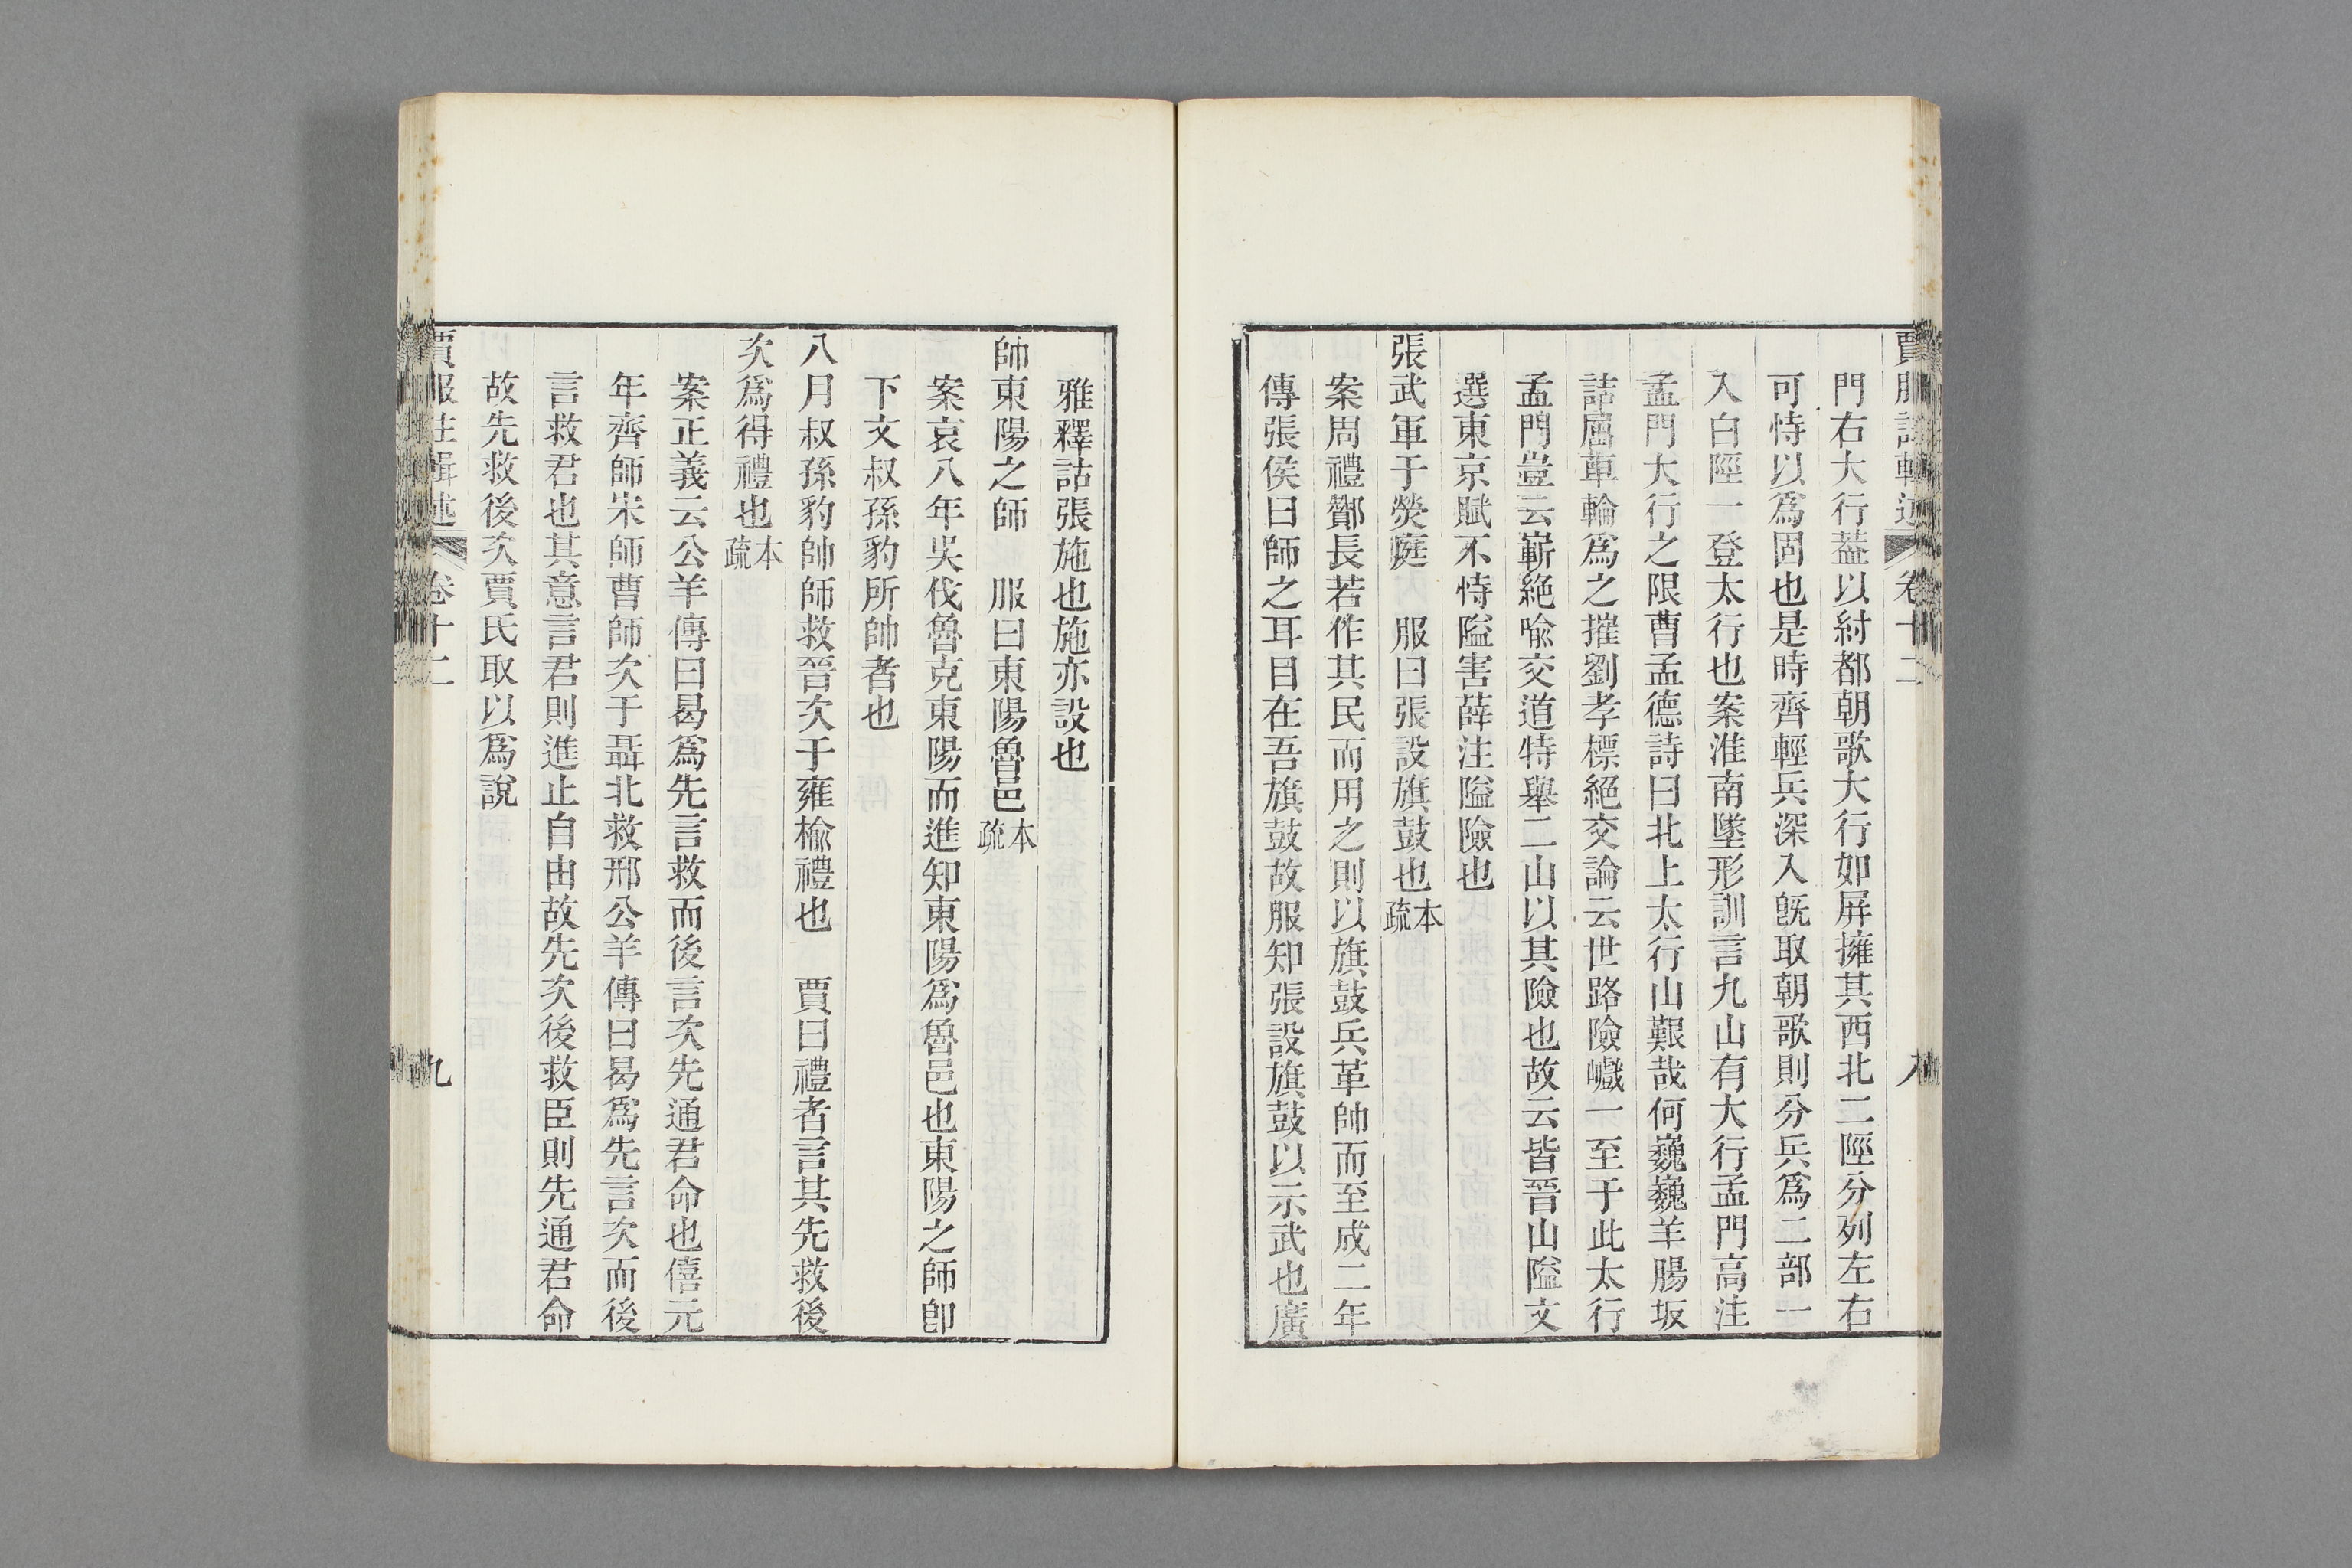 賈服注輯述 卷十二 八
門右大行葢以紂都朝歌大行如屏擁其西北二陘分列左右
可恃以爲固也是時齊輕兵深入旣取朝歌則分兵爲二部一
入白陘一登太行也案淮南墬形訓言九山有大行孟門高注
孟門大行之限曹孟德詩曰北上太行山艱哉何巍巍羊腸坂
詰屈車輪爲之摧劉孝標絕交論云世路險巇一至于此太行
孟門豈云嶄絕喻交道特舉二山以其險也故云皆晉山隘文
選東京賦不恃隘害薛注隘險也
張武軍于熒庭 服曰張設旗鼓也本疏
案周禮酇長若作其民而用之則以旗鼓兵革帥而至成二年
傳張侯曰師之耳目在吾旗鼓故服知張設旗鼓以示武也廣
雅釋詁張施也施亦設也
帥東陽之師 服曰東陽魯邑本疏
案哀八年吳伐魯克東陽而進知東陽爲魯邑也東陽之師卽
下文叔孫豹所帥者也
八月叔孫豹帥師救晉次于雍榆禮也 賈曰禮者言其先救後
次爲得禮也本疏
案正義云公羊傳曰曷爲先言救而後言次先通君命也僖元
年齊師宋師曹師次于聶北救邢公羊傳曰曷爲先言次而後
言救君也其意言君則進止自由故先次後救臣則先通君命
故先救後次賈氏取以爲說
賈服注輯述 卷十二 九